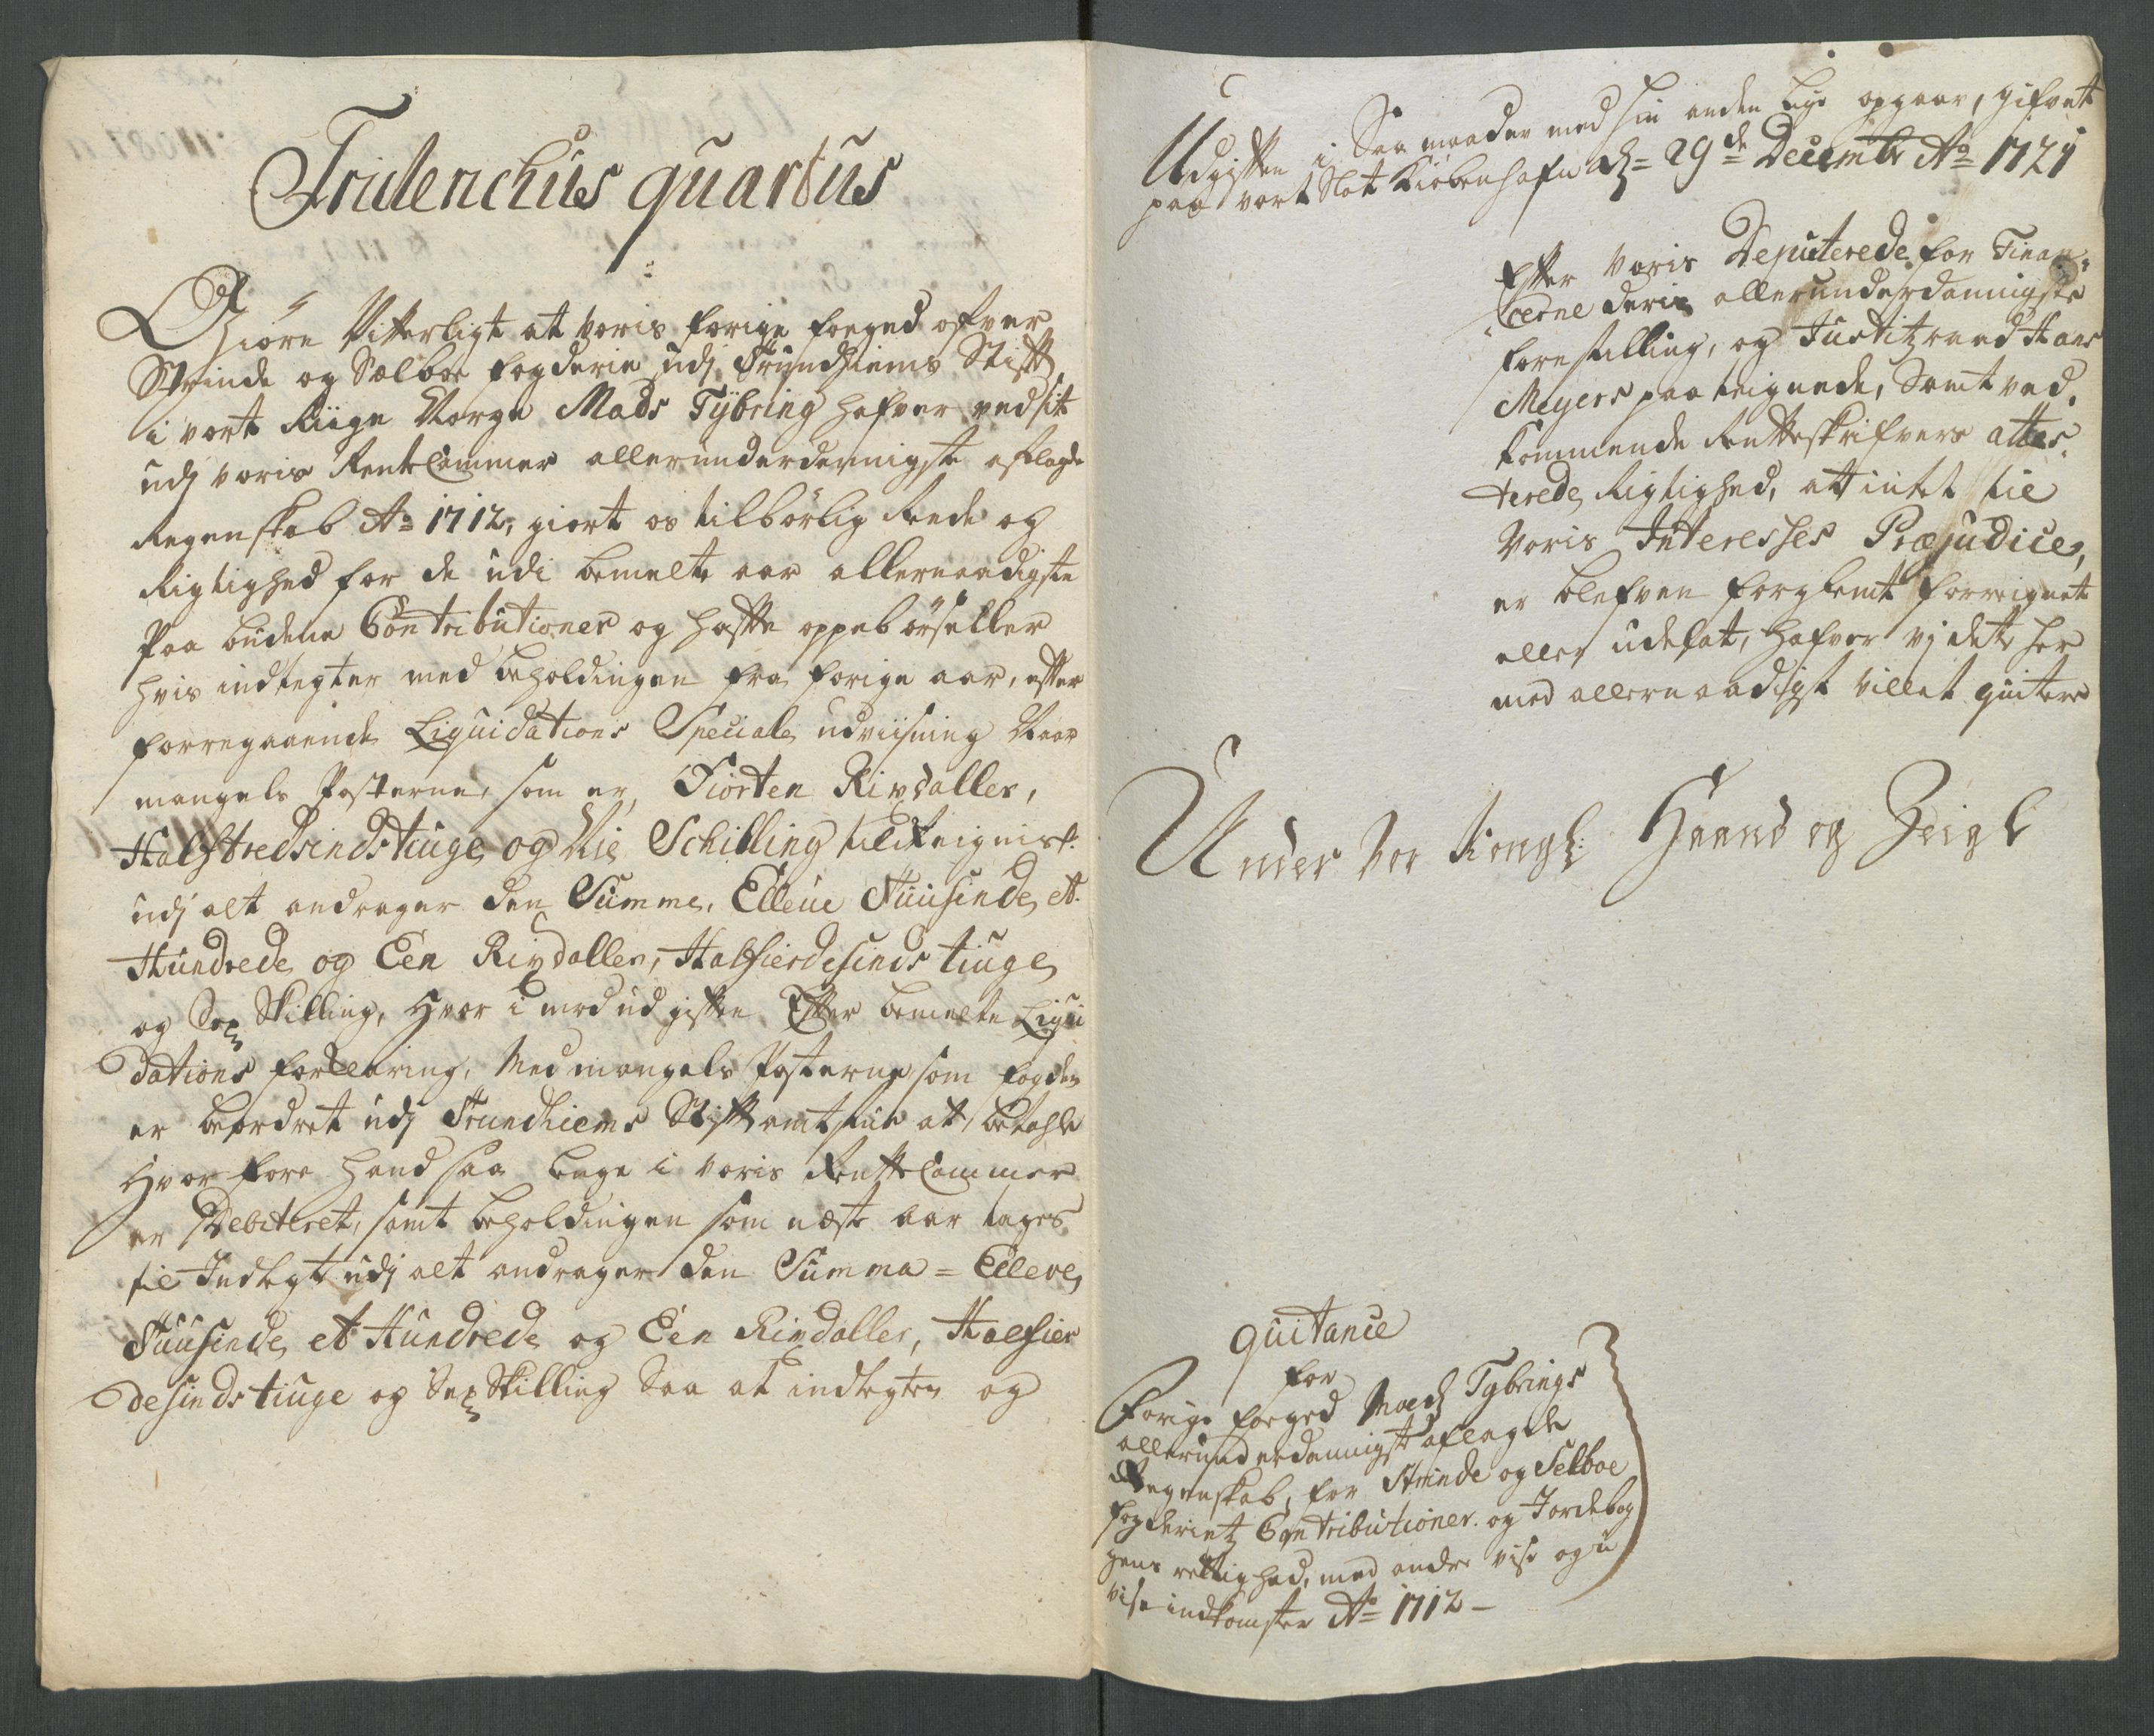 Fridericus quartus
Giöre Vitterligt at voris forige foeged ofver
Strinde og Sælboe fogderie udj Trundhiems Stift
i vort Riige Norge Mads Tÿbring hafver ved sit
udj voris RenteCammer allerunderdannigste aflagde
Regenskab Ao 1712, giort os tilbörlig Rede og
Rigtighed for de udi bemelte aar allernaadigste
Paa budene Contributioner og hafte oppebörseller
hvis indtegter med beholdingen fra forige aar, efter
forregaaende Liquidations Speciale udviisning Naar
mangels Posterne, som er, Fiorten Rixdaller,
Halftredsindstiuge og Nie Schilling tillereignis
udj alt andrager den Summa, Elleve Tuusinde, et
Hundrede og Een Rixdaller, Halfierdesindstiuge
og Sex Skilling, Hvor i mod udgiften Efter bemelte Liqui
dations forklaring, Med mangels Posterne som fogden
er beordret udj Trundhiems Stiftamtstue at betahle
Hvor fore hand saa lenge i voris RentteCammer
er Debiteret, samt beholdingen som neste aar tages
til Indtegt udj alt andrager den Summa = Elleve
Tuusinde, et Hundrede og Een Rixdaller, Halfier
desindstiuge og Sex Skilling Saa at indtegten og
Udgiften i Saa maader med hin anden lige opgaar, gifvet
paa vort Slot Kiöbenhafn d = 29de Decembr Ao 1721
Efter voris Deputerede for Finan-
cerne deris allerunderdannigste
forestilling, og Justitzraad Hans
Meyers paateignede, Samt ved-
kommende Rentteskrifvers attes-
terede Rigtighed, att intet til
Voris Interesses Præjudice,
er blefven forglemt forreignet
eller udelat, hafver vj dette her
med allernaadigst villet quitere
Under Vor Kongl: Haand og Zeigl
quitance
for
Forige foeged Mads Tybrings
allerunderdannigst aflagde
Regenskab, for Strinde og Selboe
fogderietz Contributioner og Jordebog
gens rettighed, med andre vise og u
vise indkomster Ao 1712 -